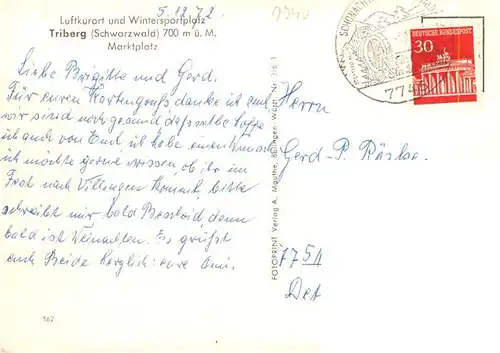 5.12.72
Luftkurort und Wintersportplatz
Triberg (Schwarzwald) 700 m ü. M.
Marktplatz
Liebe Brigitte und Gerd.
Für euren Kartengruß danke ich euch
wir sind noch gesund dasselbe hoffe
ich auch von Euch, ich habe einen Wunsch
ich möchte gerne wissen, ob ihr im
Fest nach Villingen kommt, bitte
schreibt mir bald Bescheid denn
bald ist Weinachten. Es grüßt
euch Beide herzlich: eure Omi.
162
FOTOPRINT Verlag A. Mauthe, Balingen Württ. Nr. 316/1
DEUTSCHE BUNDESPOST
30
Herrn
Gerd-P.
Det